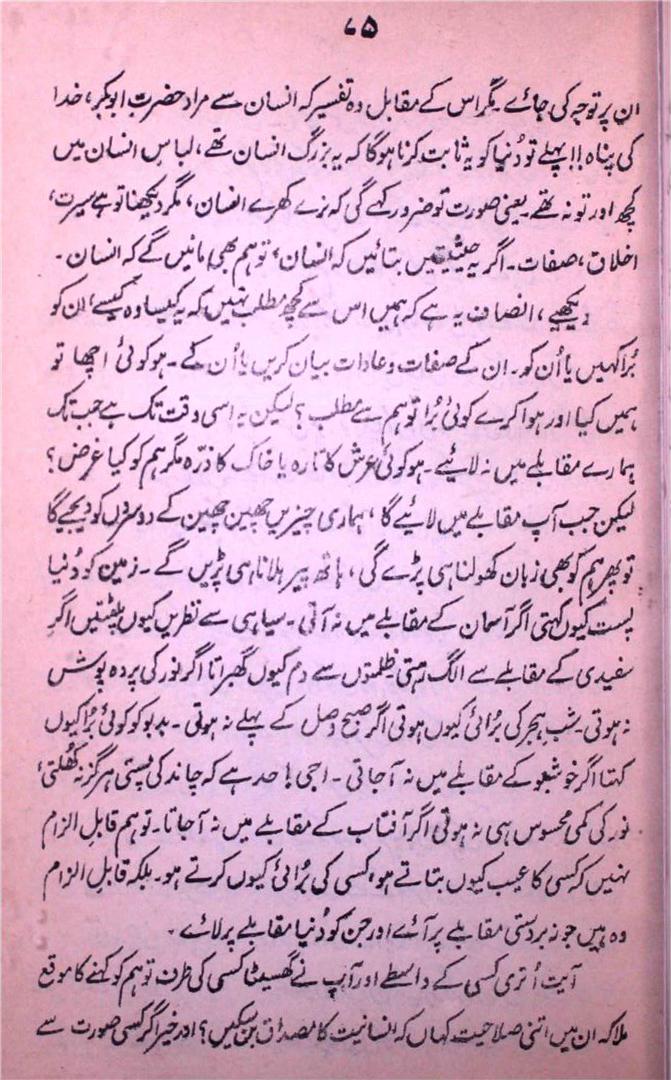 ۷۵
ان پر توجہ کی جائے۔ مگر اس کے مقابل وہ تفسیر کہ انسان سے مراد حضرت ابوبکر، خدا
کی پناہ!! پہلے تو دُنیا کو یہ ثابت کرنا ہوگا کہ یہ بزرگ انسان تھے، لباسِ انسان میں
کچھ اور تو نہ تھے۔ یعنی صورت تو ضرور کہے گی کہ نرے کھرے انسان، مگر دیکھنا تو ہے سیرت،
اخلاق، صفات۔ اگر یہ حیثیتیں بتائیں کہ انسان، تو ہم بھی مانیں گے کہ انسان۔
دیکھیے، انصاف یہ ہے کہ ہمیں اس سے کچھ مطلب نہیں کہ یہ کیسا وہ کیسے، ان کو
بُرا کہیں یا اُن کو۔ ان کے صفات و عادات بیان کریں یا اُن کے۔ ہو کوئی اچھا تو
ہمیں کیا اور ہوا کرے کوئی بُرا تو ہم سے مطلب؟ لیکن یہ اسی وقت تک ہے جب تک
ہمارے مقابلے میں نہ لائیے۔ ہو کوئی عرش کا تارہ یا خاک کا ذرّہ مگر ہم کو کیا غرض؟
لیکن جب آپ مقابلے میں لائیے گا، ہماری چیزیں چھین چھین کے دوسروں کو دیجیے گا
تو پھر ہم کو بھی زبان کھولنا ہی پڑے گی، ہاتھ پیر ہلانا ہی پڑیں گے۔ زمین کو دُنیا
پست کیوں کہتی اگر آسمان کے مقابلے میں نہ آتی۔ سیاہی سے نظریں کیوں پلٹتیں اگر
سفیدی کے مقابلے سے الگ رہتی ظلمتوں سے دم کیوں گھبراتا اگر نور کی پردہ پوش
نہ ہوتی۔ شبِ ہجر کی بُرائی کیوں ہوتی اگر صبح وصل کے پہلے نہ ہوتی۔ بدبو کو کوئی بُرا کیوں
کہتا اگر خوشبو کے مقابلے میں نہ آجاتی۔ اجی! حد ہے کہ چاند کی پستی ہرگز نہ کھُلتی،
نور کی کمی محسوس ہی نہ ہوتی اگر آفتاب کے مقابلے میں نہ آجاتا۔ تو ہم قابلِ الزام
نہیں کہ کسی کا عیب کیوں بتاتے ہو، کسی کی بُرائی کیوں کرتے ہو۔ بلکہ قابل الزام
وہ ہیں جو زبردستی مقابلے پر آئے اور جن کو دُنیا مقابلے پر لائے۔
آیت اُتری کسی کے واسطے اور آپ نے گھسیٹا کسی کی طرف تو ہم کو کہنے کا موقع
ملا کہ ان میں اتنی صلاحیت کہاں کہ انسانیت کا مصداق بن سکیں؟ اور خیر اگر کسی صورت سے